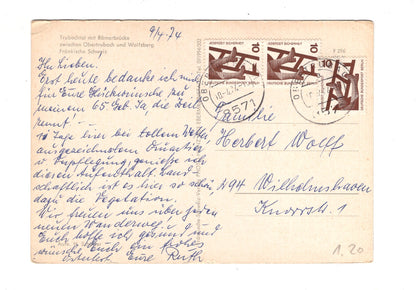 Trubachtal mit Römerbrücke
zwischen Obertrubach und Wolfsberg
Fränkische Schweiz
9/4. 74
Ihr Lieben.
Erst heute bedanke ich mich
für Eure Glückwünsche zu
meinem 65. Geb. Ja, die Zeit
rennt!
10 Tage hier bei tollem Wetter
ausgezeichnetem Quartier
u. Verpflegung, genieße ich
diesen Aufenthalt. Land-
schaftlich ist es hier so schön
dazu die Vegetation.
Wir freuen uns über jeden
neuen Wanderweg. u. g
Euch hoffe ich gesund und
wünsche Euch ein frohes
Osterfest Eure Ruth
JEDERZEIT SICHERHEIT
10
JEDERZEIT SICHERHEIT
10
10
8571
Familie
Herbert Wolff
294 Wilhelmshaven
Knorrstr. 1
1.20